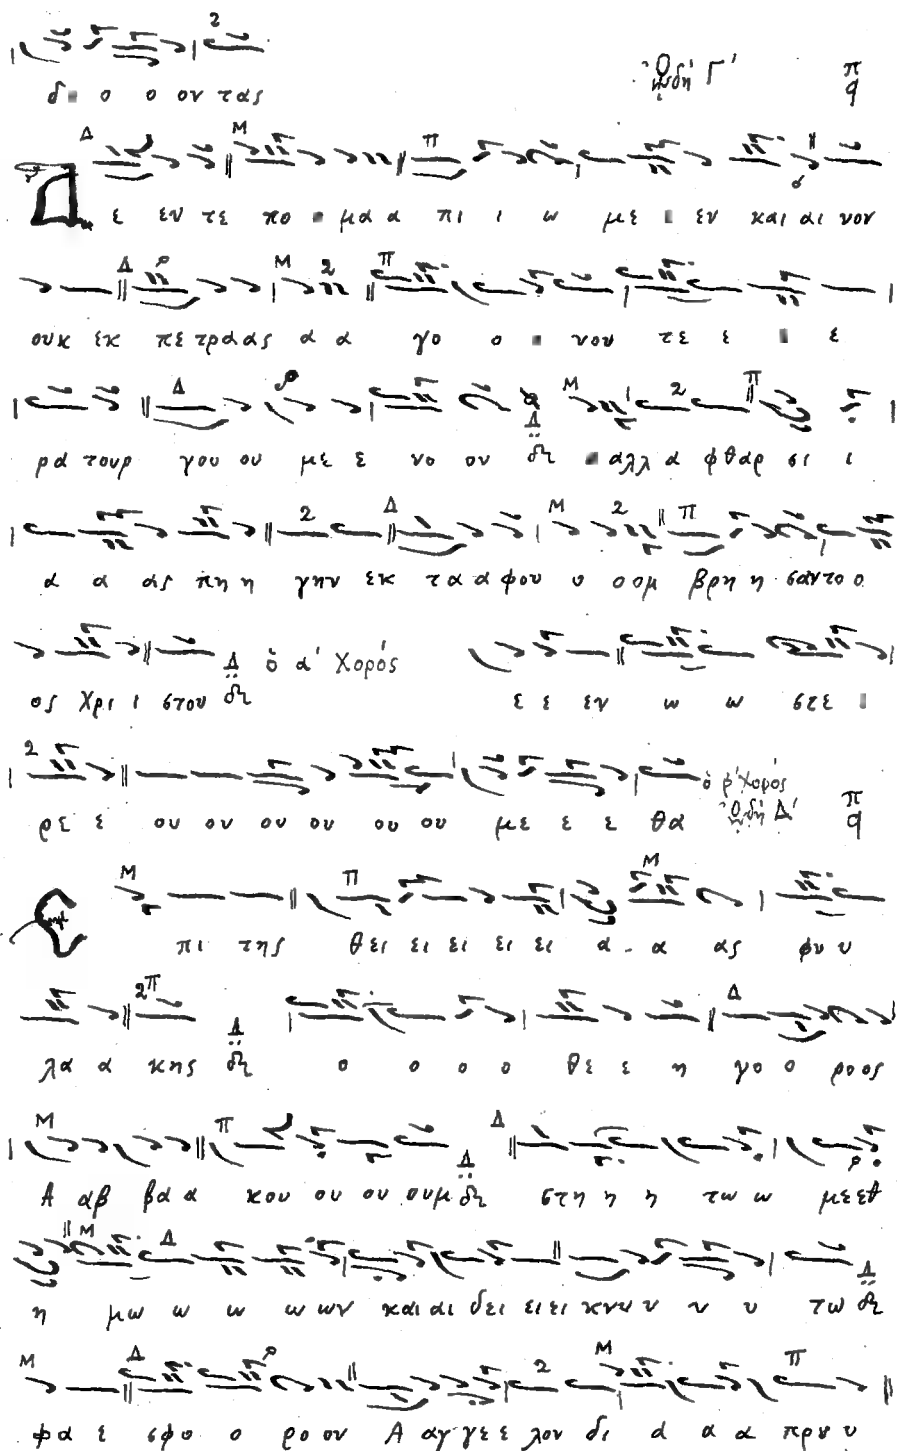 δ ο ο ον τας
ᾨδή Γ΄ π q
Δ ε εν τε πο μα α πι ι ω με εν και αι νον
ουκ εκ πε τρα ας α α γο ο νου τε ε ε
ρα τουρ γου ου με ε νο ον Δ αλλ α φθαρ σι ι
α α ας πη η γην εκ τα α φου υ ο ομ βρη η σαντο ο
ος Χρι ι στου Δ ὁ α΄ Χορός ε ε εν ω ω στε
ρε ε ου ου ου ου ου ου με ε ε θα ὁ β΄ Χορός ᾨδή Δ΄ π q
Ε πι της θει ει ει ει ει α α ας φυ υ
λα α κης Δ ο ο ο ο θε ε η γο ο ρο ος
Α αβ βα α κου ου ου ουμ Δ στη η η τω ω με εθ
η μω ω ω ω ων και αι δει ει ει κνυ υ υ υ τω Δ
φα ε σφο ο ρο ον Α αγ γε ε λον δι α α α πρυ υ